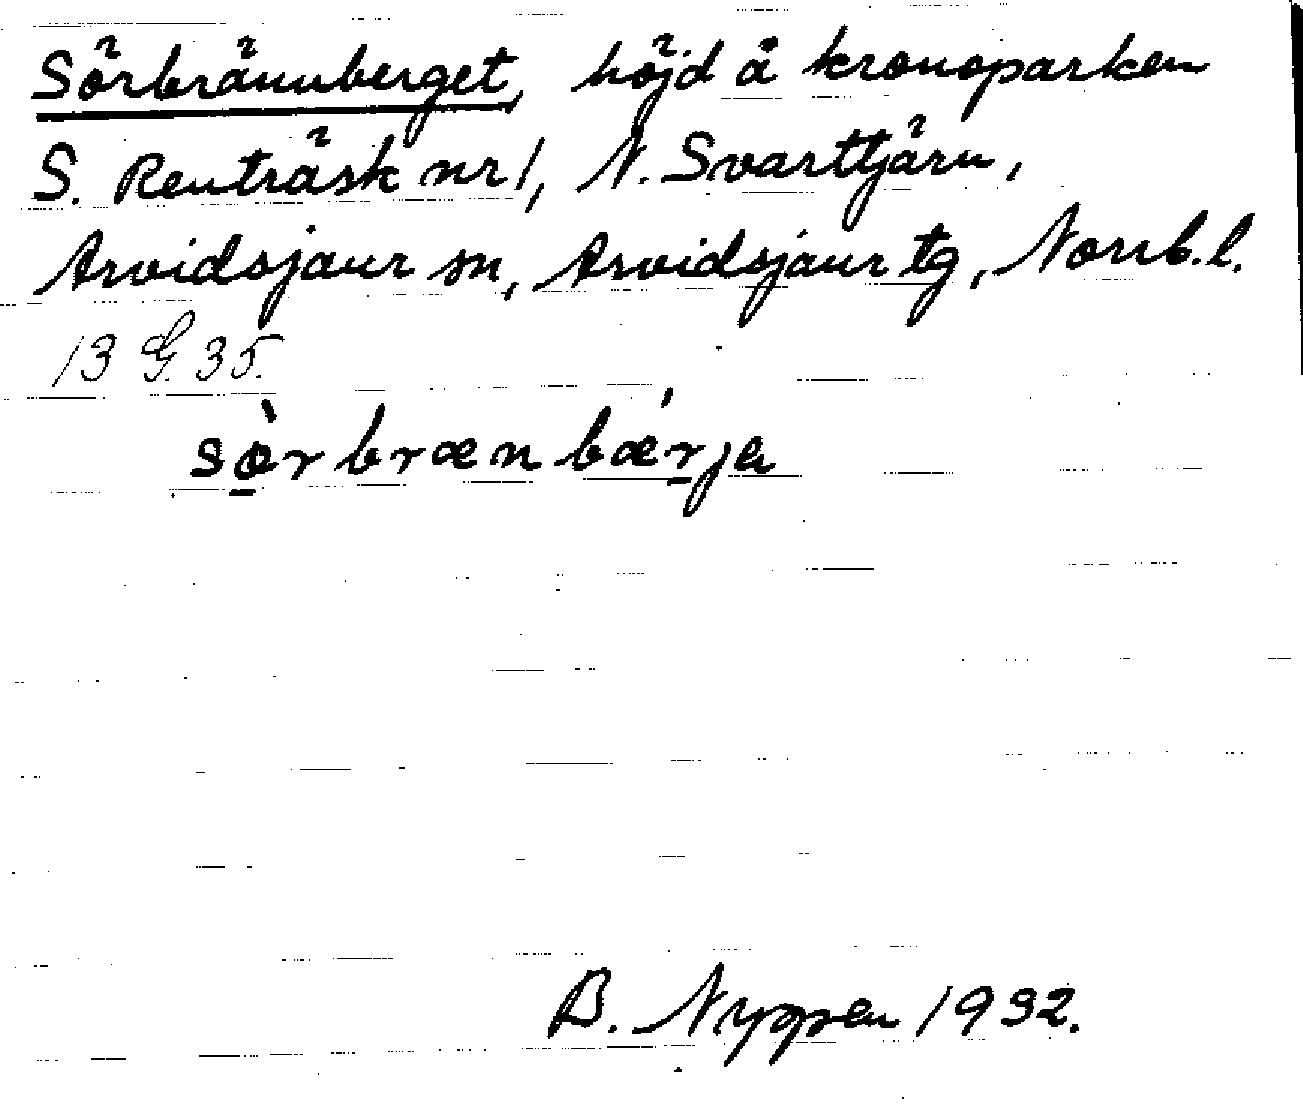 Sörbrännberget, höjd å kronoparken
S. Renträsk nr 1, N. Svarttjärn,
Arvidsjaur sn, Arvidsjaur tg, Norrb. l.
13 G. 35.
sø̱̀rbrænbǽṟja
B. Nyppen 1932.